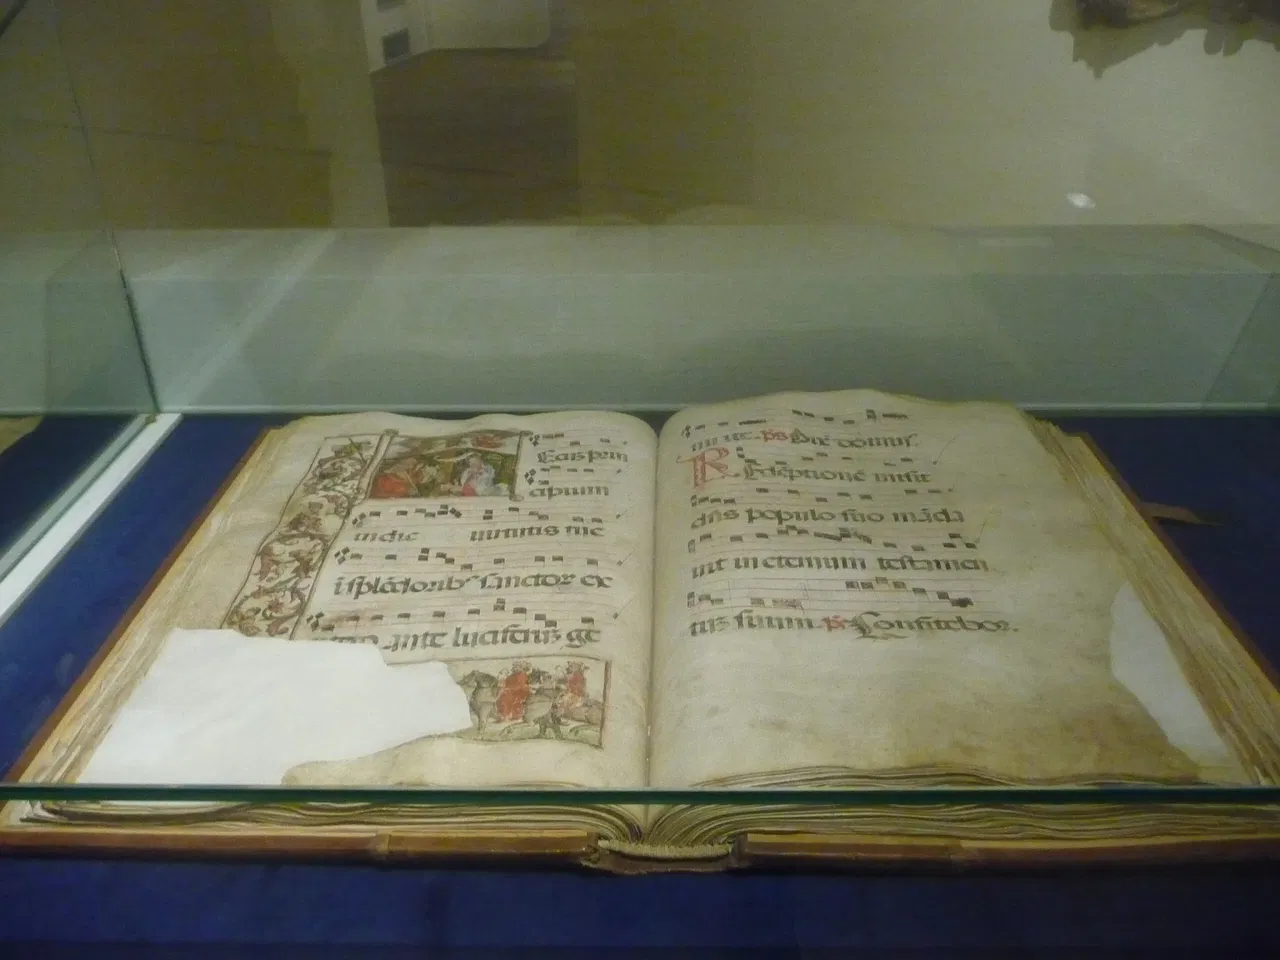 Ecũ prin
cipium
in die uirtutis tue
ĩ splẽdorib᾽ sanctor ex
ante luciferũ ge
nui te. p̃s Dix̃ domin᾽.
Redẽptionẽ misit
dñs populo suo mãda
uit in eternum testamen
tũ suum p̃s Confitebor.